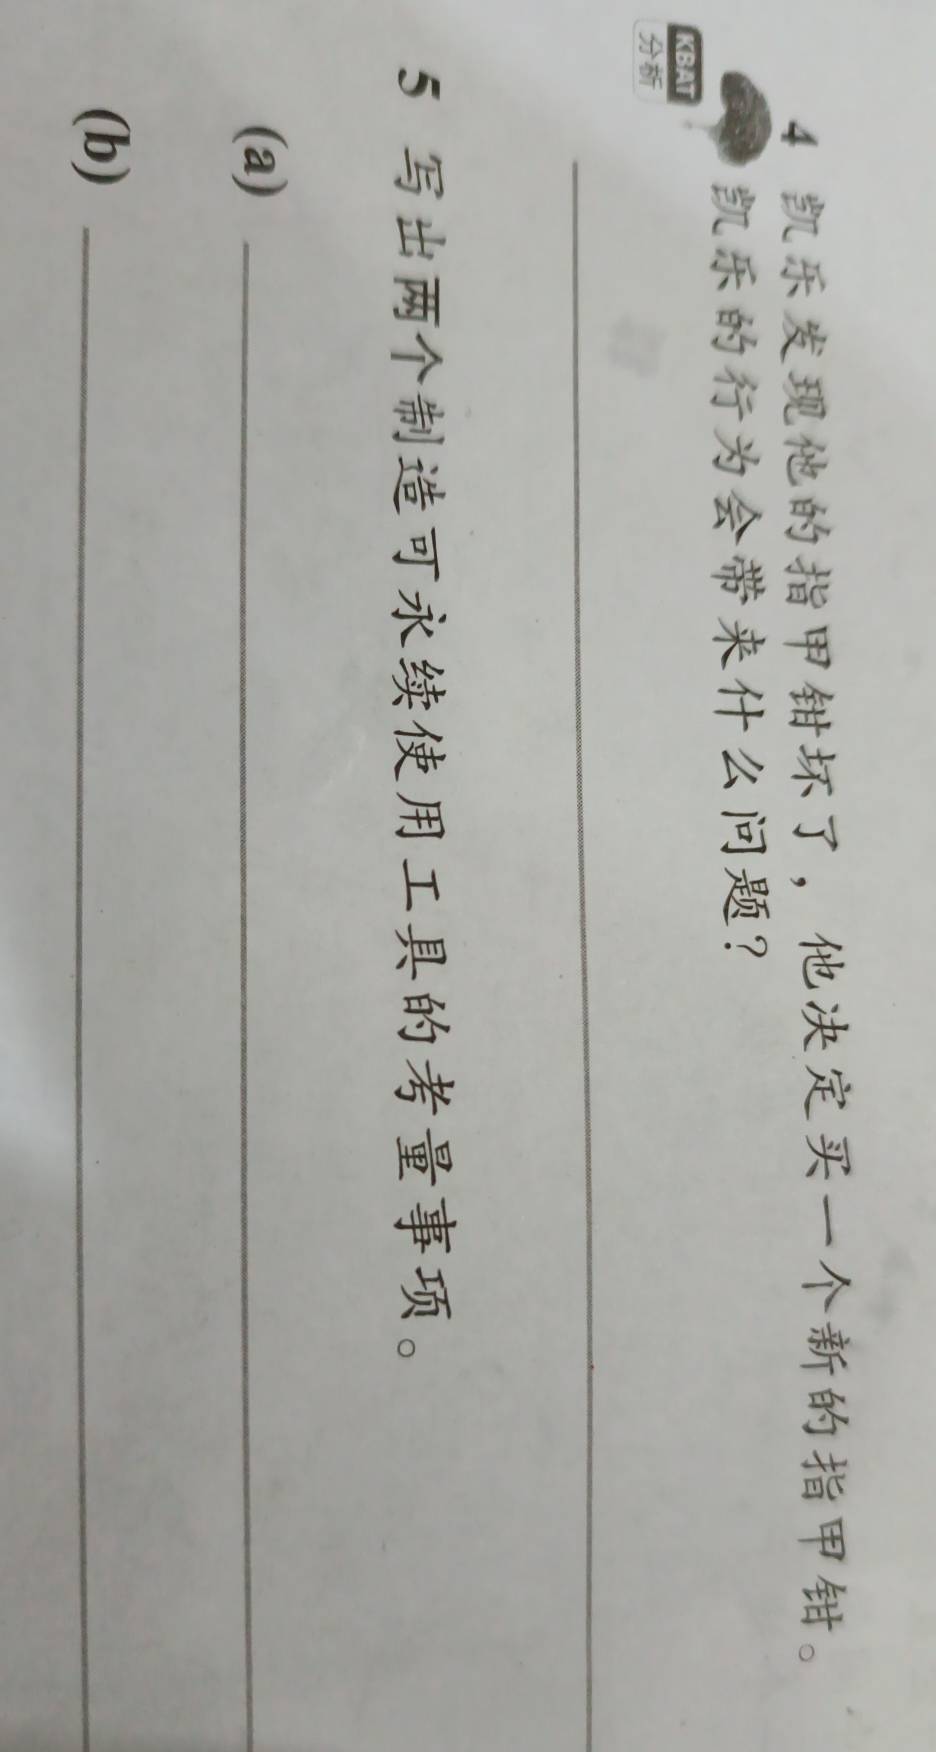 4 凯乐发现他的指甲钳坏了，他决定买一个新的指甲钳。
凯乐的行为会带来什么问题？
KBAT
分析
5 写出两个制造可永续使用工具的考量事项。
(a)
(b)